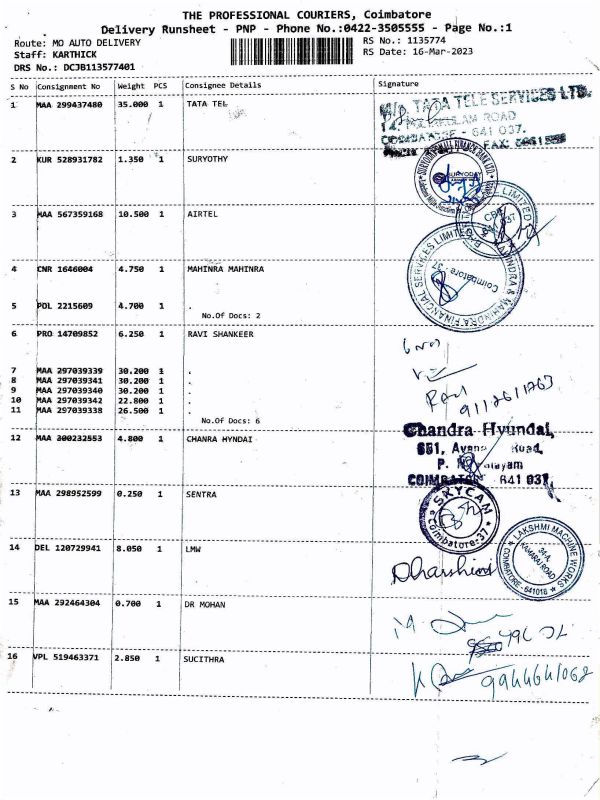 THE PROFESSIONAL COURIERS, Coimbatore
Delivery Runsheet - PNP - Phone No.:0422-3505555 - Page No.:1
Route: MO AUTO DELIVERY
RS No.: 1135774
Staff: KARTHICK
RS Date: 16-Mar-2023
DRS No.: DCJB113577401
S No Consignment No Weight PCS Consignee Details Signature
1 MAA 299437480 35.000 1 TATA TEL
M/s. TATA TELE SERVICES LTD.
ROAD
COIMBATORE - 641 037.
FAX:
2 KUR 528931782 1.350 1 SURYOTHY
SURYODAY
3 MAA 567359168 10.500 1 AIRTEL
LIMITED
CBE
641 037
4 CNR 1646004 4.750 1 MAHINRA MAHINRA
MAHINDRA & MAHINDRA FINANCIAL SERVICES LIMITED
Coimbatore
- 37 -
5 POL 2215609 4.700 1 .
No.Of Docs: 2
6 PRO 14709852 6.250 1 RAVI SHANKEER
7 MAA 297039339 30.200 1 .
8 MAA 297039341 30.200 1 .
9 MAA 297039340 30.200 1 .
10 MAA 297039342 22.800 1 .
11 MAA 297039338 26.500 1 .
No.Of Docs: 6
12 MAA 300232553 4.800 1 CHANRA HYNDAI
Chandra Hyundai,
Road,
COIMBATORE - 641 037.
13 MAA 298952599 0.250 1 SENTRA
SKYCAM
Coimbatore-37
14 DEL 120729941 8.050 1 LMW
LAKSHMI MACHINE WORKS
34-A,
KAMARAJ ROAD
COIMBATORE - 641018
Dharshini
15 MAA 292464304 0.700 1 DR MOHAN
16 VPL 519463371 2.850 1 SUCITHRA
9944641068